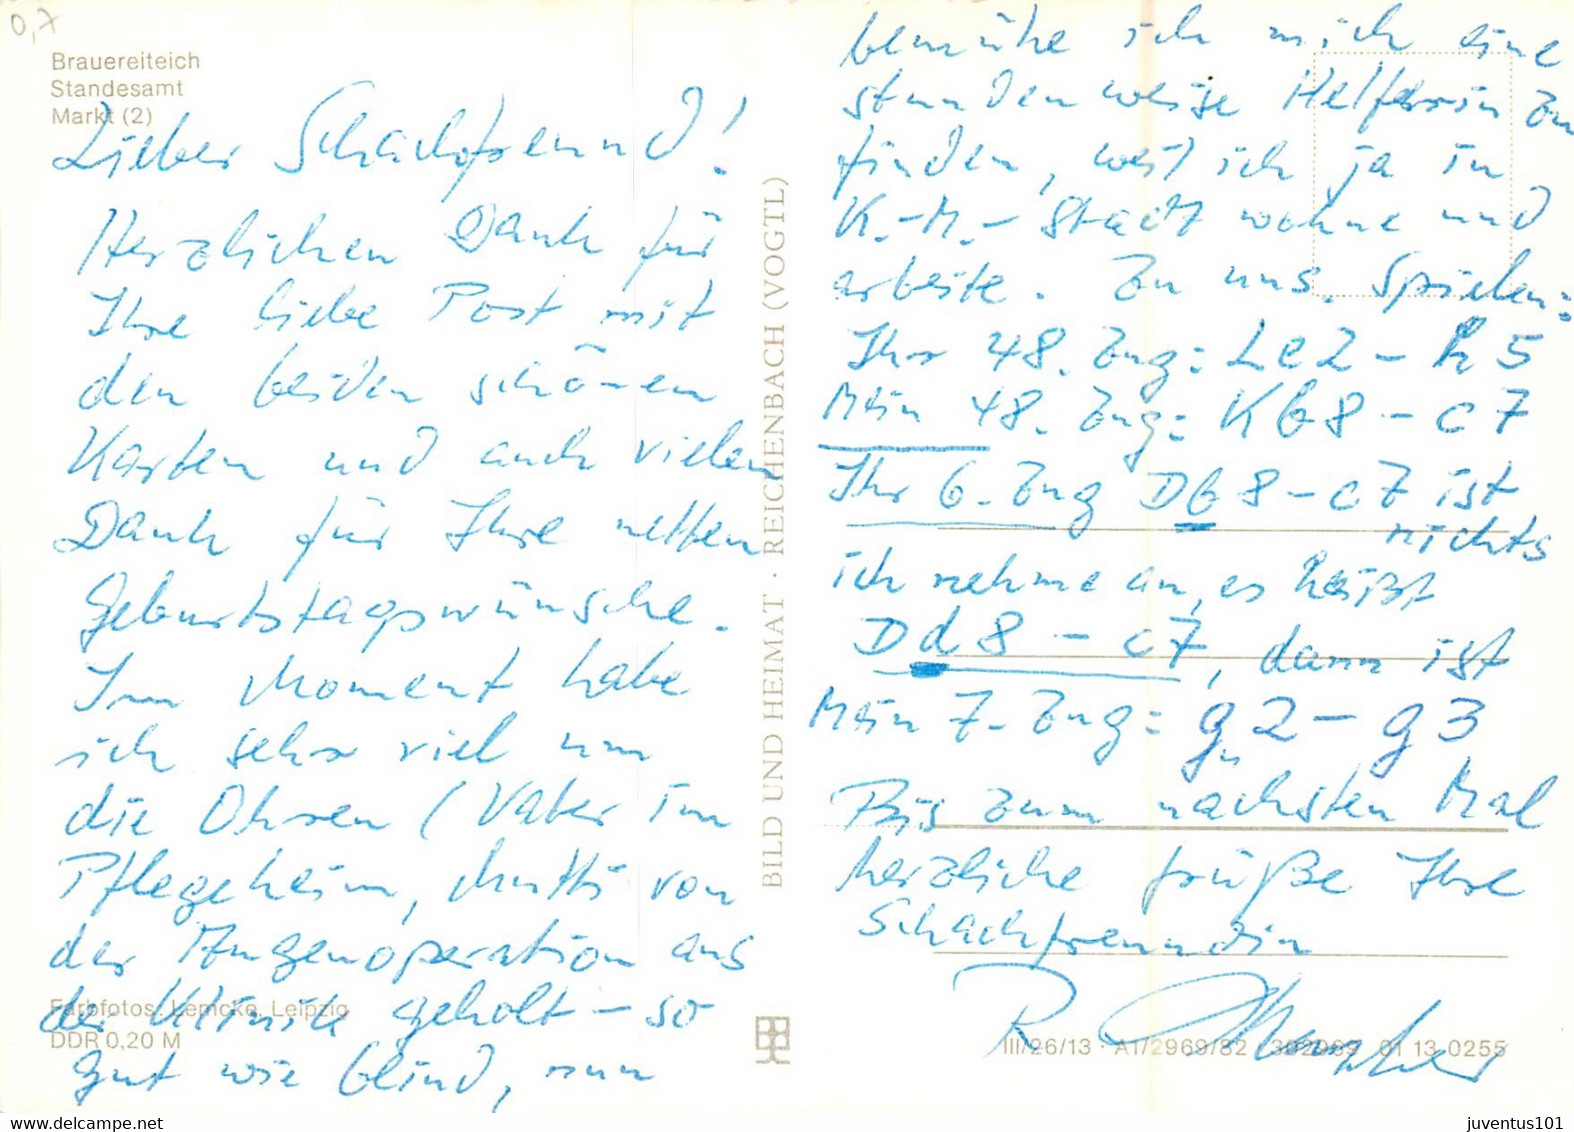 0,7
Brauereiteich
Standesamt
Markt (2)
Lieber Schachfreund!
Herzlichen Dank für
Ihre liebe Post mit
den beiden schönen
Karten und auch vielen
Dank für Ihre netten
Geburtstagswünsche.
Im Moment habe
ich sehr viel um
die Ohren (Vater im
Pflegeheim, Mutti von
der Augenoperation aus
der Klinik geholt – so
gut wie blind, nun
Farbfotos: Lemcke, Leipzig
DDR 0,20 M
BILD UND HEIMAT · REICHENBACH (VOGTL)
bemühe ich mich eine
stundenweise Helferin zu
finden, weil ich ja in
K.-M.-Stadt wohne und
arbeite. Zu uns. Spielen:
Ihr 48. Zug: Le2 – h5
Mein 48. Zug: Kb8 – c7
Ihr 6. Zug Db8 – c7 ist
nichts
ich nehme an, es heißt
Dd8 – c7, dann ist
Mein 7. Zug: g2 – g3
Bis zum nächsten Mal
herzliche Grüße Ihre
Schachfreundin
R.
III/26/13 · A1/2969/82 302969 01 13 0255
juventus101